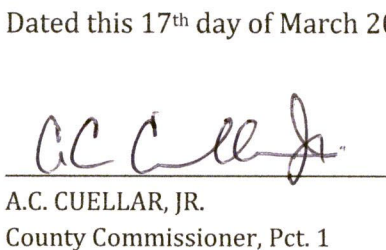 Dated this 17th day of March 20
AC Cuellar Jr.
A.C. CUELLAR, JR.
County Commissioner, Pct. 1